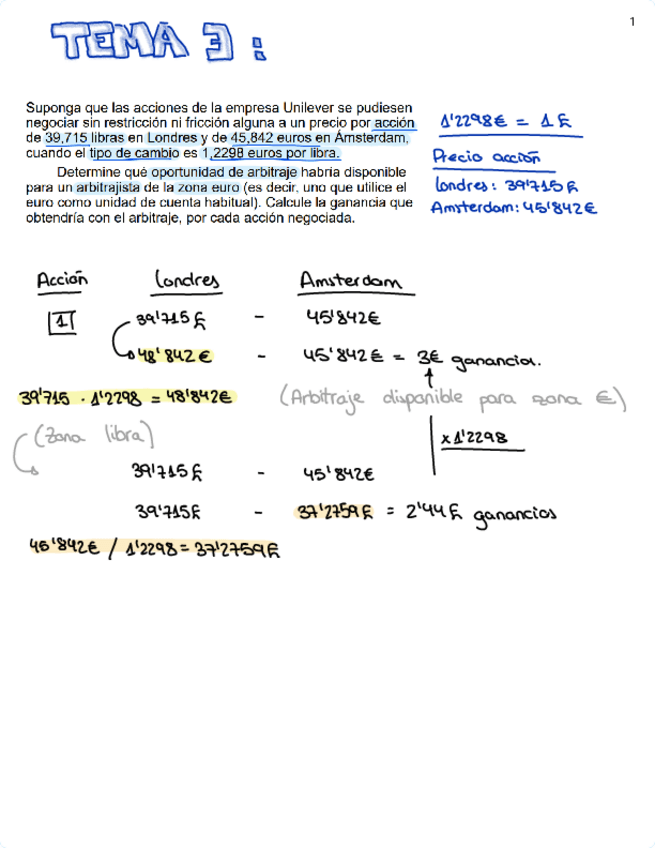 1
TEMA 3:
Suponga que las acciones de la empresa Unilever se pudiesen
negociar sin restricción ni fricción alguna a un precio por acción
de 39,715 libras en Londres y de 45,842 euros en Ámsterdam,
cuando el tipo de cambio es 1,2298 euros por libra.
Determine qué oportunidad de arbitraje habría disponible
para un arbitrajista de la zona euro (es decir, uno que utilice el
euro como unidad de cuenta habitual). Calcule la ganancia que
obtendría con el arbitraje, por cada acción negociada.
1'2298€ = 1 £
Precio acción
Londres: 39'715 £
Amsterdam: 45'842€
Acción Londres Amsterdam
1 39'715 £ - 45'842€
48'842 € - 45'842€ = 3€ ganancia.
39'715 · 1'2298 = 48'842€ (Arbitraje disponible para zona €)
(Zona libra) x 1'2298
39'715 £ - 45'842€
39'715£ - 37'2759 £ = 2'44 £ ganancias
45'842€ / 1'2298 = 37'2759 £